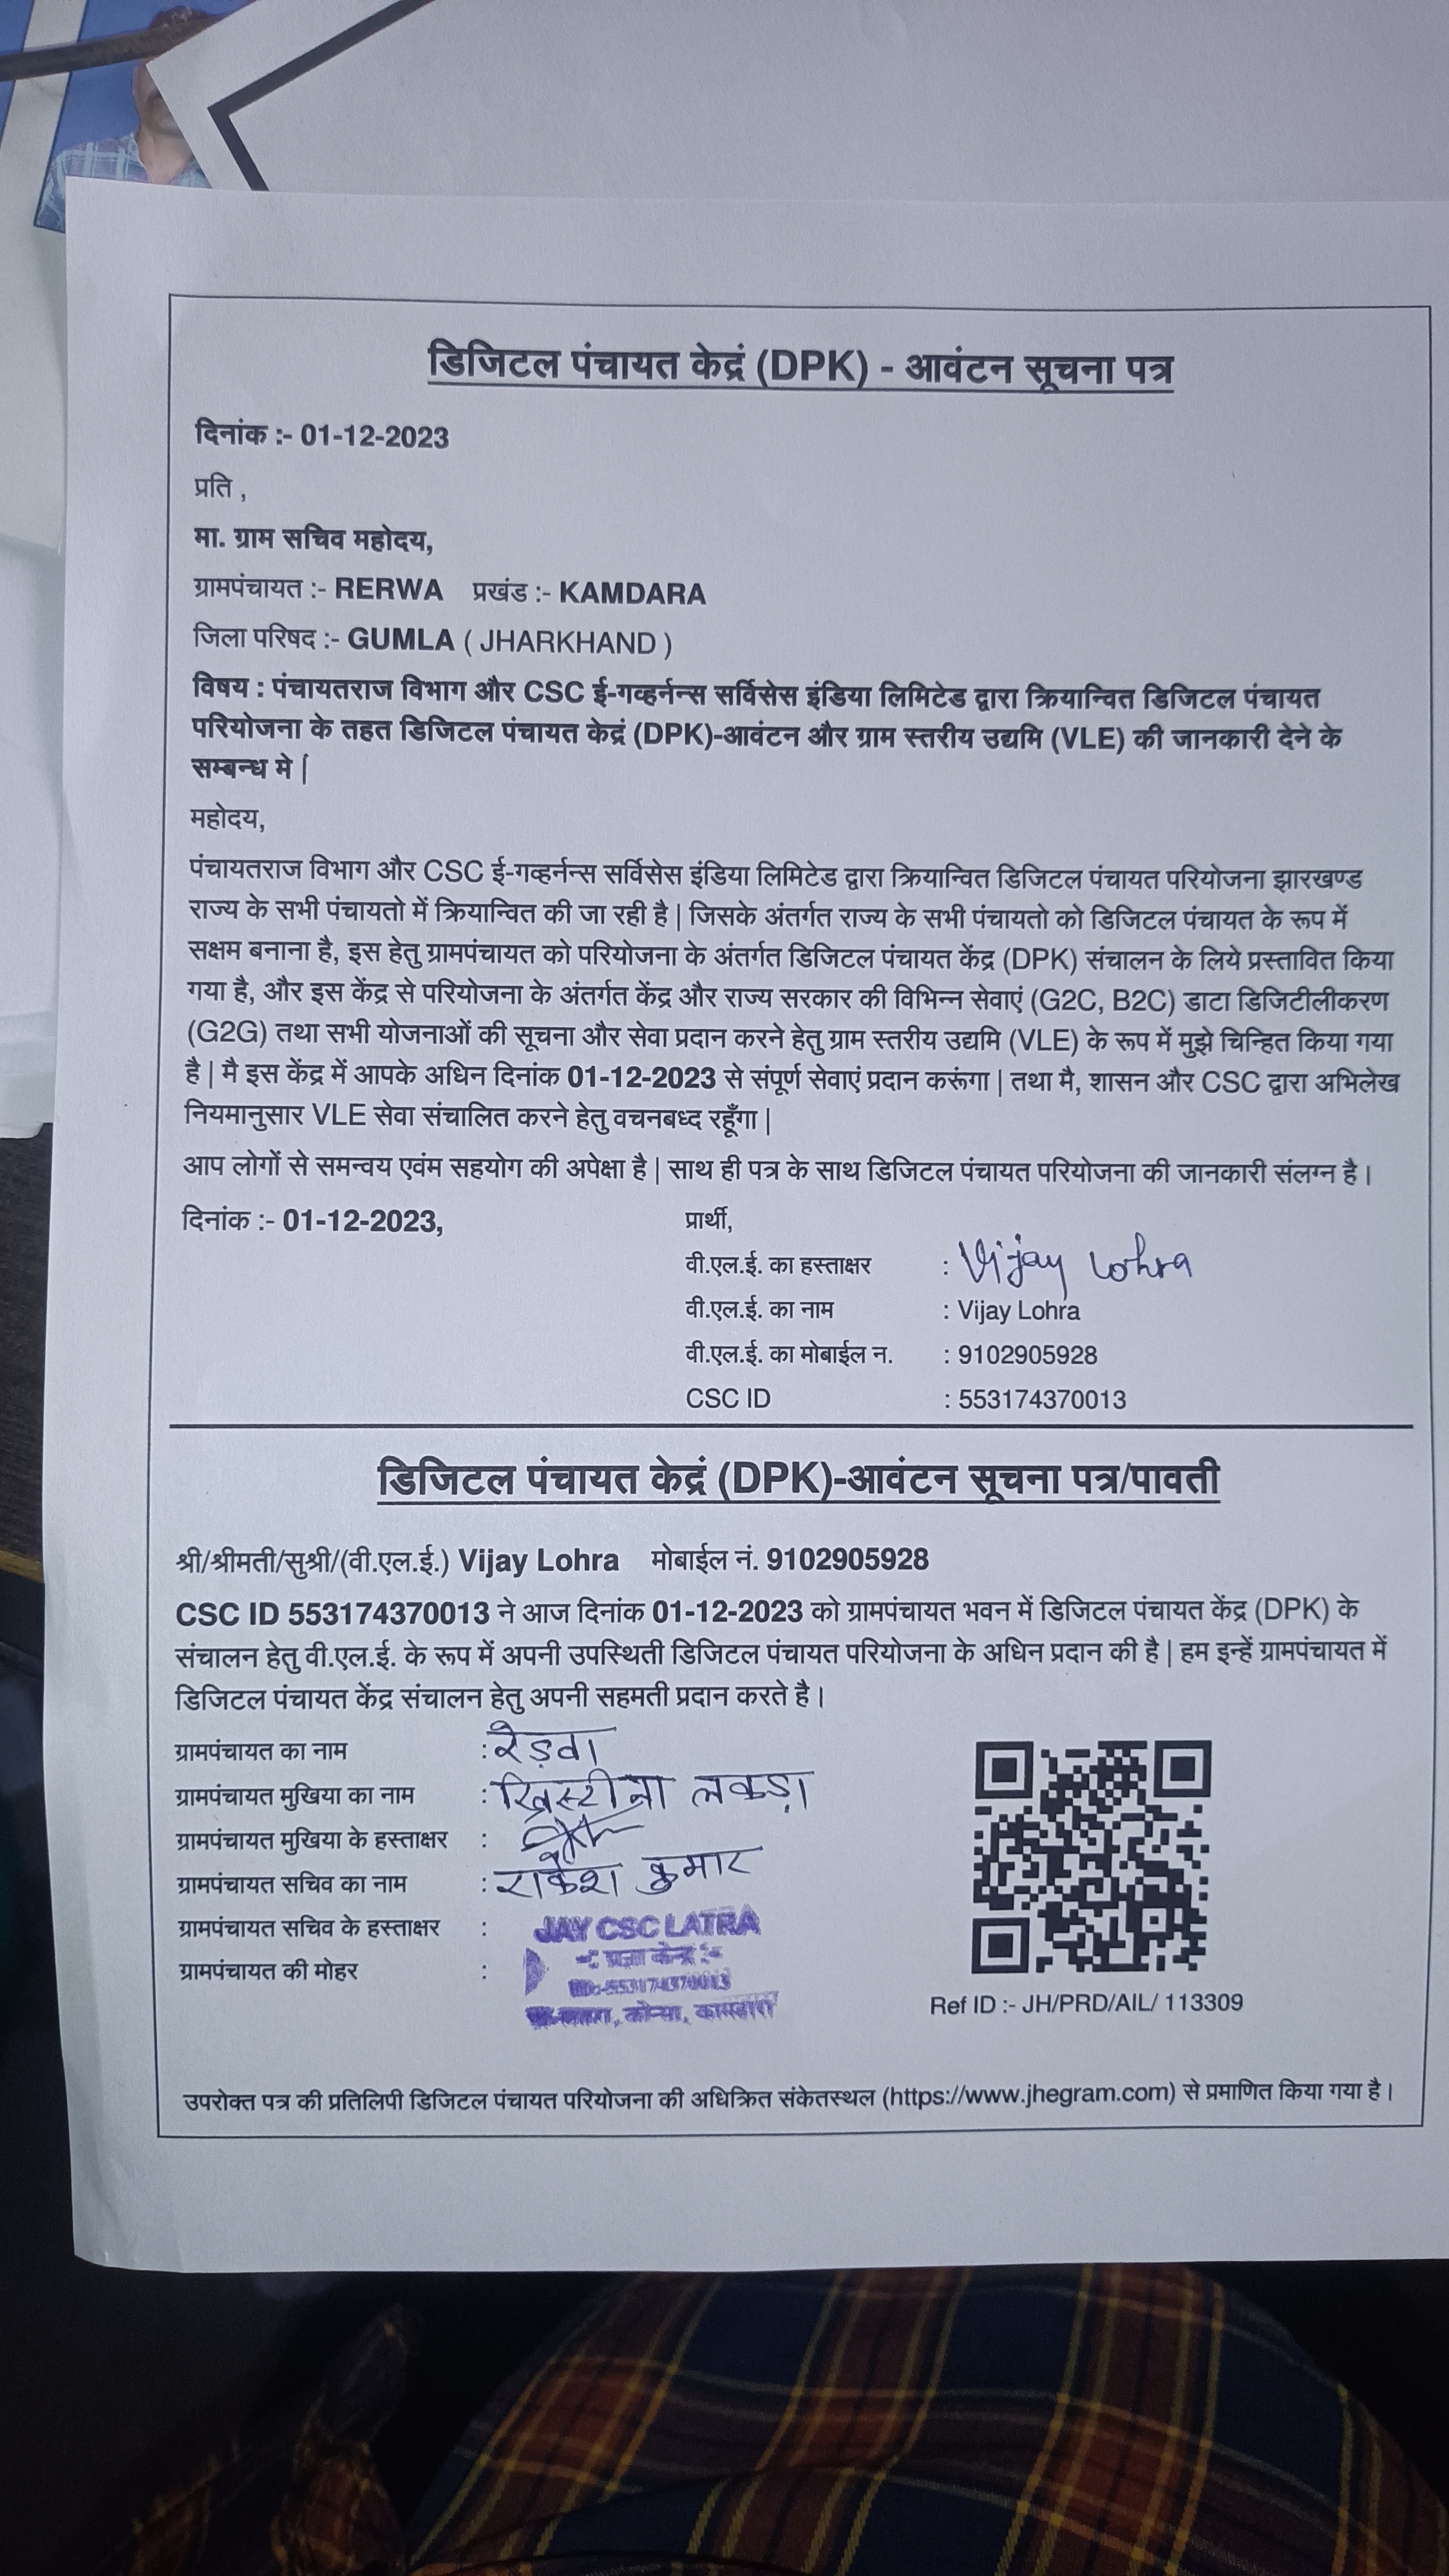 डिजिटल पंचायत केद्रं (DPK) - आवंटन सूचना पत्र
दिनांक :- 01-12-2023
प्रति ,
मा. ग्राम सचिव महोदय,
ग्रामपंचायत :- RERWA प्रखंड :- KAMDARA
जिला परिषद :- GUMLA ( JHARKHAND )
विषय : पंचायतराज विभाग और CSC ई-गव्हर्नन्स सर्विसेस इंडिया लिमिटेड द्वारा क्रियान्वित डिजिटल पंचायत
परियोजना के तहत डिजिटल पंचायत केद्रं (DPK)-आवंटन और ग्राम स्तरीय उद्यमि (VLE) की जानकारी देने के
सम्बन्ध मे |
महोदय,
पंचायतराज विभाग और CSC ई-गव्हर्नन्स सर्विसेस इंडिया लिमिटेड द्वारा क्रियान्वित डिजिटल पंचायत परियोजना झारखण्ड
राज्य के सभी पंचायतो में क्रियान्वित की जा रही है | जिसके अंतर्गत राज्य के सभी पंचायतो को डिजिटल पंचायत के रूप में
सक्षम बनाना है, इस हेतु ग्रामपंचायत को परियोजना के अंतर्गत डिजिटल पंचायत केंद्र (DPK) संचालन के लिये प्रस्तावित किया
गया है, और इस केंद्र से परियोजना के अंतर्गत केंद्र और राज्य सरकार की विभिन्न सेवाएं (G2C, B2C) डाटा डिजिटीलीकरण
(G2G) तथा सभी योजनाओं की सूचना और सेवा प्रदान करने हेतु ग्राम स्तरीय उद्यमि (VLE) के रूप में मुझे चिन्हित किया गया
है | मै इस केंद्र में आपके अधिन दिनांक 01-12-2023 से संपूर्ण सेवाएं प्रदान करूंगा | तथा मै, शासन और CSC द्वारा अभिलेख
नियमानुसार VLE सेवा संचालित करने हेतु वचनबध्द रहूँगा |
आप लोगों से समन्वय एवंम सहयोग की अपेक्षा है | साथ ही पत्र के साथ डिजिटल पंचायत परियोजना की जानकारी संलग्न है।
दिनांक :- 01-12-2023, प्रार्थी,
वी.एल.ई. का हस्ताक्षर : Vijay Lohra
वी.एल.ई. का नाम : Vijay Lohra
वी.एल.ई. का मोबाईल न. : 9102905928
CSC ID : 553174370013
डिजिटल पंचायत केद्रं (DPK)-आवंटन सूचना पत्र/पावती
श्री/श्रीमती/सुश्री/(वी.एल.ई.) Vijay Lohra मोबाईल नं. 9102905928
CSC ID 553174370013 ने आज दिनांक 01-12-2023 को ग्रामपंचायत भवन में डिजिटल पंचायत केंद्र (DPK) के
संचालन हेतु वी.एल.ई. के रूप में अपनी उपस्थिती डिजिटल पंचायत परियोजना के अधिन प्रदान की है | हम इन्हें ग्रामपंचायत में
डिजिटल पंचायत केंद्र संचालन हेतु अपनी सहमती प्रदान करते है।
ग्रामपंचायत का नाम : रेड़वा
ग्रामपंचायत मुखिया का नाम : ख्रिस्टीना लकड़ा
ग्रामपंचायत मुखिया के हस्ताक्षर :
ग्रामपंचायत सचिव का नाम : राकेश कुमार
ग्रामपंचायत सचिव के हस्ताक्षर :
ग्रामपंचायत की मोहर :
JAY CSC LATRA
-: प्रज्ञा केन्द्र :-
553174370013
कोन्सा, कामडारा
Ref ID :- JH/PRD/AIL/ 113309
उपरोक्त पत्र की प्रतिलिपी डिजिटल पंचायत परियोजना की अधिक्रित संकेतस्थल (https://www.jhegram.com) से प्रमाणित किया गया है।